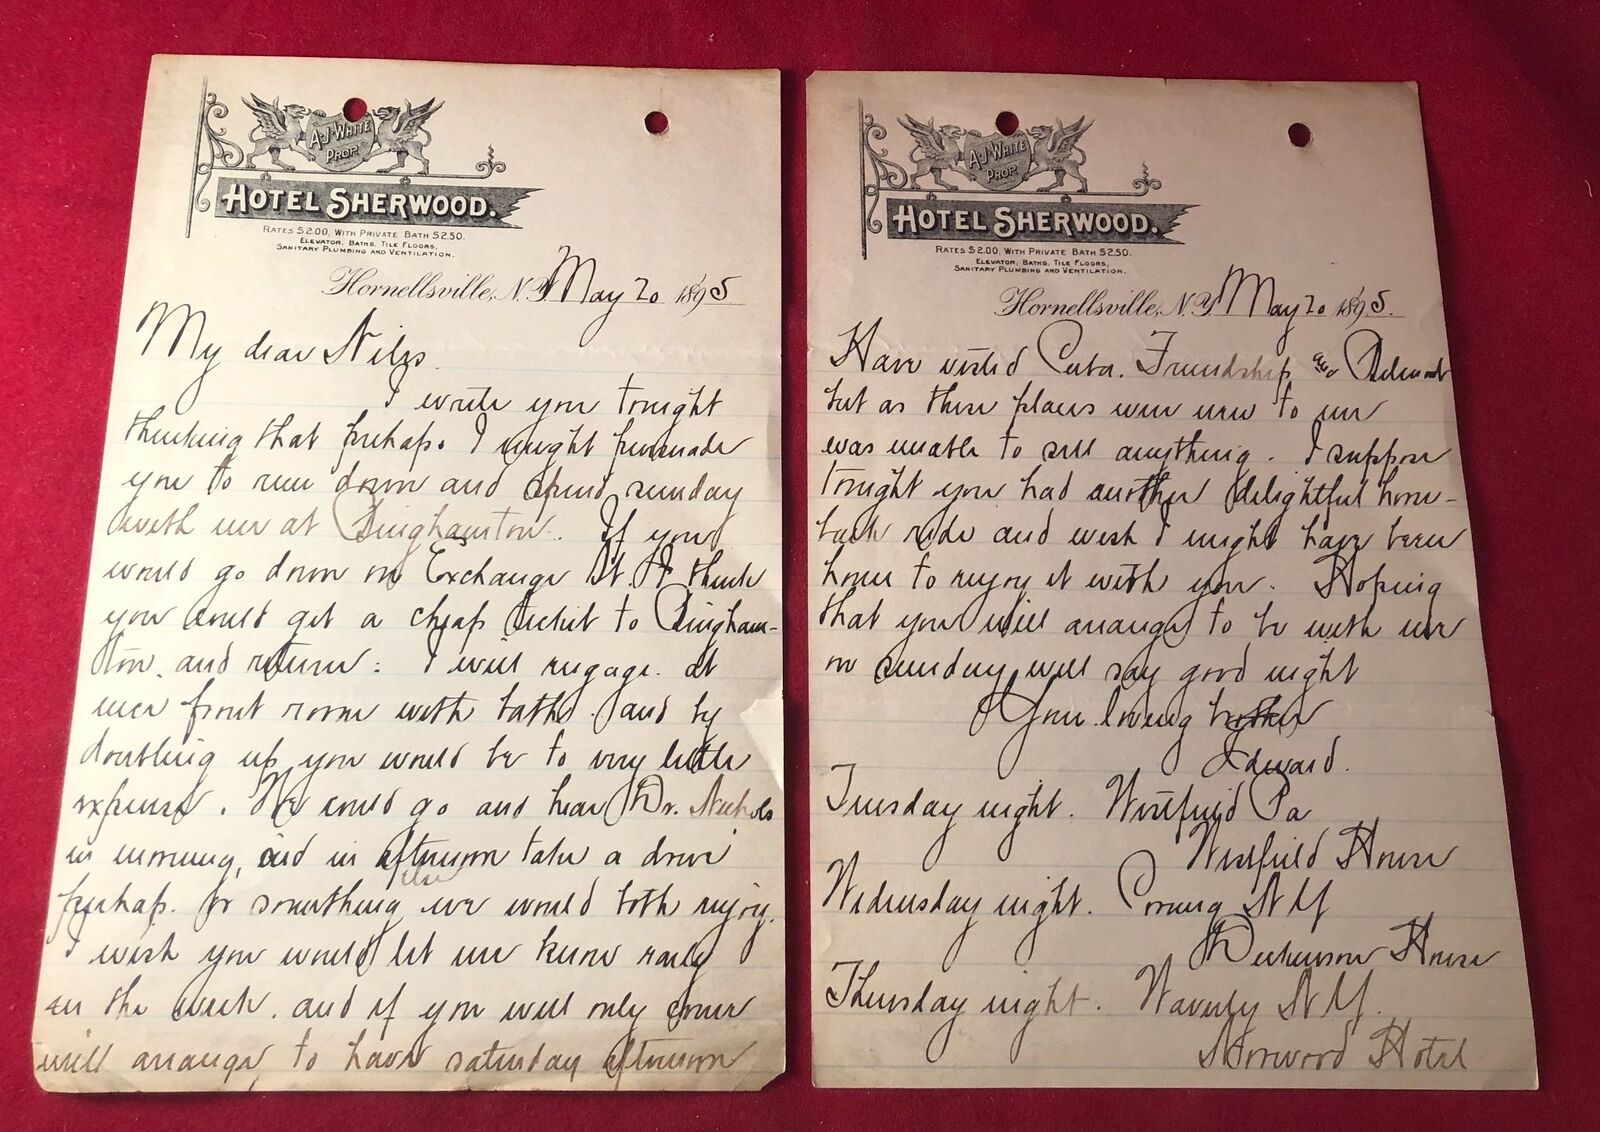 A. J. White
Prop.
Hotel Sherwood.
Rates $2.00, With Private Bath $2.50.
Elevator, Baths, Tile Floors,
Sanitary Plumbing and Ventilation.
Hornellsville, N.Y. May 20 1895
My dear Niles.
I write you tonight
thinking that perhaps I might persuade
you to run down and spend sunday
with me at Binghamton. If you
would go down on Exchange St. I think
you could get a cheap ticket to Bingham-
ton. and return. I will engage. at
nice front room with bath. and by
doubling up you would be to very little
expense. We could go and hear Dr. Nichols
in morning, and in afternoon take a drive
perhaps. or something else we would both enjoy.
I wish you would let me know early
in the week. and if you will only come
will arrange to have saturday afternoon
A. J. White
Prop.
Hotel Sherwood.
Rates $2.00, With Private Bath $2.50.
Elevator, Baths, Tile Floors,
Sanitary Plumbing and Ventilation.
Hornellsville, N.Y. May 20 1895.
Have visited Cuba. Friendship and Belmont
but as these places were new to me
was unable to sell anything. I suppose
tonight you had another delightful horse-
back ride and wish I might have been
home to enjoy it with you. Hoping
that you will arrange to be with me
on sunday will say good night
Your loving brother
Edward.
Tuesday night. Westfield Pa
Westfield House
Wednesday night. Corning N Y
Dickinson House
Thursday night. Waverly N Y.
Hotel